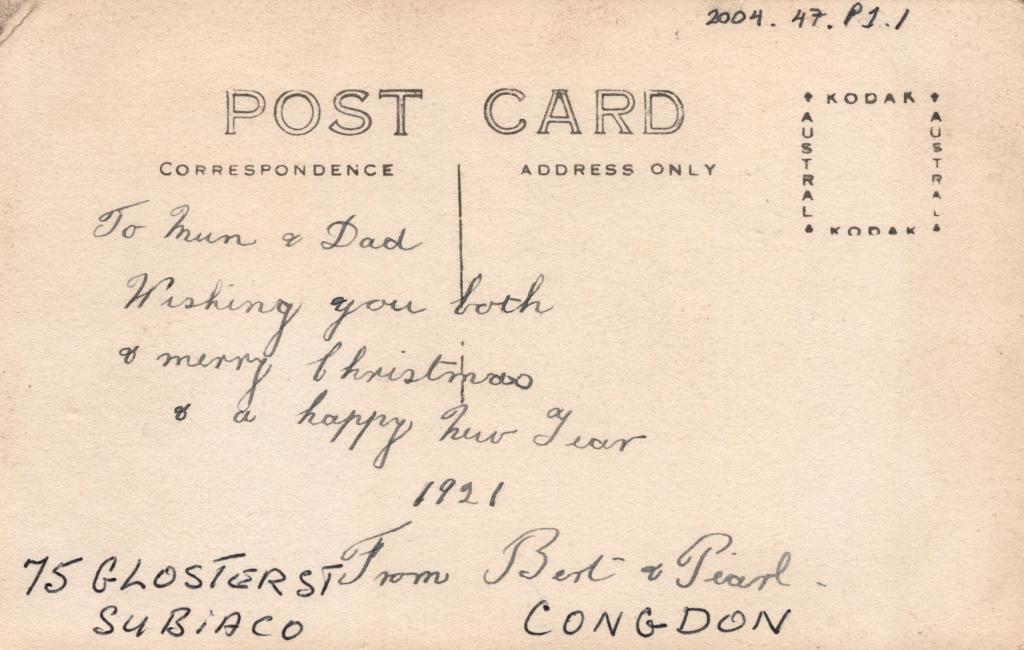 2004. 47. P1.1
POST CARD
CORRESPONDENCE
ADDRESS ONLY
KODAK
AUSTRAL
AUSTRAL
KODAK
To Mum & Dad
Wishing you both
& merry Christmas
& a happy New Year
1921
From Bert & Pearl.
75 GLOSTER ST
SUBIACO
CONGDON